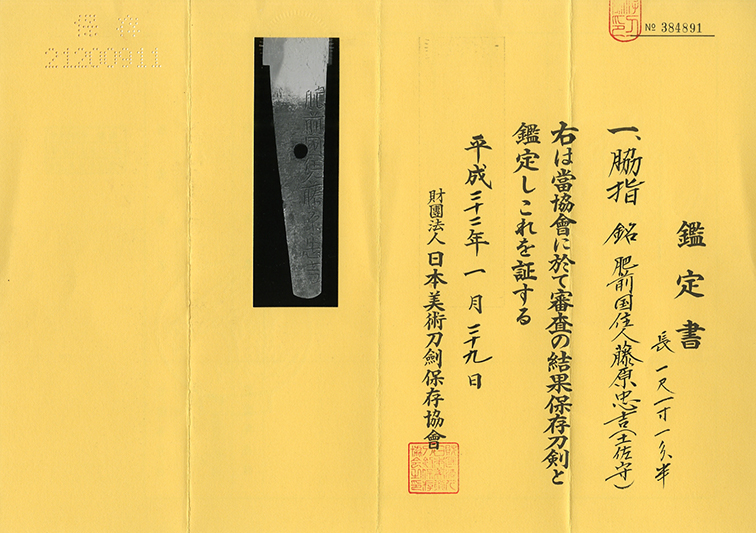 № 384891
鑑定書
長 一尺一寸一分半
一、脇指 銘 肥前国住人藤原忠吉(土佐守)
右は當協會に於て審査の結果保存刀剣と
鑑定しこれを証する
平成二十二年一月二十九日
財團法人日本美術刀劍保存協會
肥前國住人藤原忠吉
保存
21200911